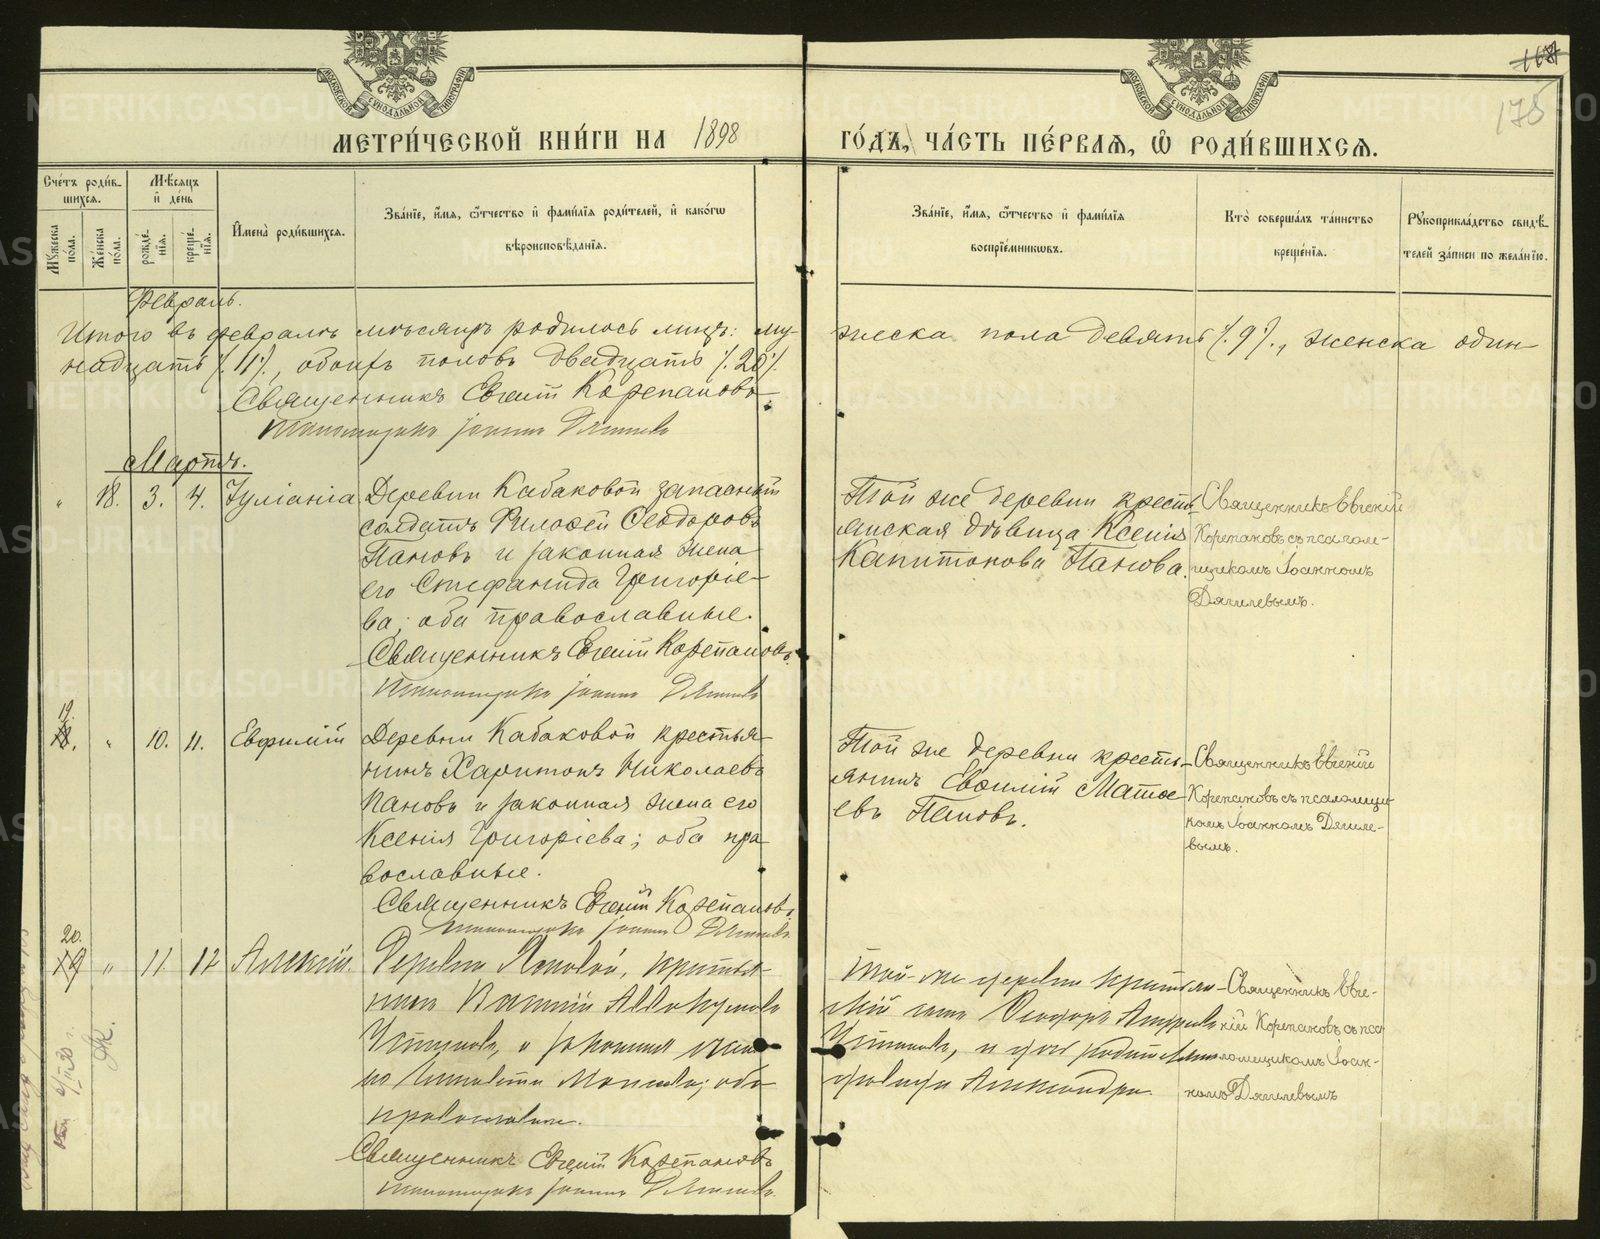 МОСКОВСКОЙ СѴНОДАЛЬНОЙ ТИПОГРАФІИ
МОСКОВСКОЙ СѴНОДАЛЬНОЙ ТИПОГРАФІИ
178
МЕТРИ́ЧЕСКОЙ КНИ́ГИ НА 1898 ГО́ДЪ, ЧА́СТЬ ПЕ́РВАЯ, Ѡ РОДИ́ВШИХСЯ.
Сче́тъ роди́вшихся.
Мꙋ́жеска по́ла.
Же́нска по́ла.
Мѣ́сяцъ и де́нь
рожде́нїя.
креще́нїя.
И҆мена̀ роди́вшихся.
Зва́нїе, и҆́мя, ѻ҆́тчество и҆ фами́лїя роди́телей, и҆ како́гѡ вѣроисповѣ́данїя.
Зва́нїе, и҆́мя, ѻ҆́тчество и҆ фами́лїя воспрїе́мникѡвъ.
Кто̀ соверша́лъ та́инство креще́нїя.
Рꙋкоприкла́дство свидѣ́телей за́писи по жела́нїю.
Февраль.
Итого въ февралѣ мѣсяцѣ родилось лицъ: му-
жеска пола девять /.9./, женска один-
надцать /.11./, обоихъ половъ двадцать /.20./.
Священникъ Евгеній Корепановъ
Псаломщикъ Іоаннъ Дягилевъ
Мартъ.
" 18. 3. 4. Іуліанія
Деревни Кабаковой запасный
солдатъ Филоѳей Ѳеодоровъ
Пановъ и законная жена
его Стефанида Григоріе-
ва; оба православные.
Священникъ Евгеній Корепановъ.
Псаломщикъ Іоаннъ Дягилевъ
Той же деревни кресть-
янская дѣвица Ксенія
Капитонова Панова.
Священникъ Евгеній
Корепановъ съ псалом-
щикомъ Іоанномъ
Дягилевымъ.
19.
18. " 10. 11. Евфимій
Деревни Кабаковой крестья-
нинъ Харитонъ Николаевъ
Пановъ и законная жена его
Ксенія Григоріева; оба пра-
вославные.
Священникъ Евгеній Корепановъ.
Псаломщикъ Іоаннъ Дягилевъ.
Той же деревни кресть-
янинъ Василій Матѳе-
евъ Пановъ.
Священникъ Евгеній
Корепановъ съ псаломщи-
комъ Іоанномъ Дягиле-
вымъ.
20.
19 " 11. 12 Алексій.
Деревни крестья-
нинъ Василій Аввакумовъ
Устиновъ, и законная жена
его Елисавета оба
православные.
Священникъ Евгеній Корепановъ
Псаломщикъ Іоаннъ Дягилевъ.
Той-же деревни крестьян-
скій сынъ Ѳеодоръ Андреевъ
Устиновъ, и дочь родителей
дѣвица Александра.
Священникъ Евге-
ній Корепановъ съ пса-
ломщикомъ Іоан-
номъ Дягилевымъ
METRIKI.GASO-URAL.RU